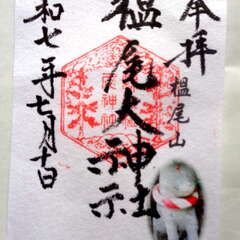 奉拝
榲尾山
榲尾大神社
和七年七月十日